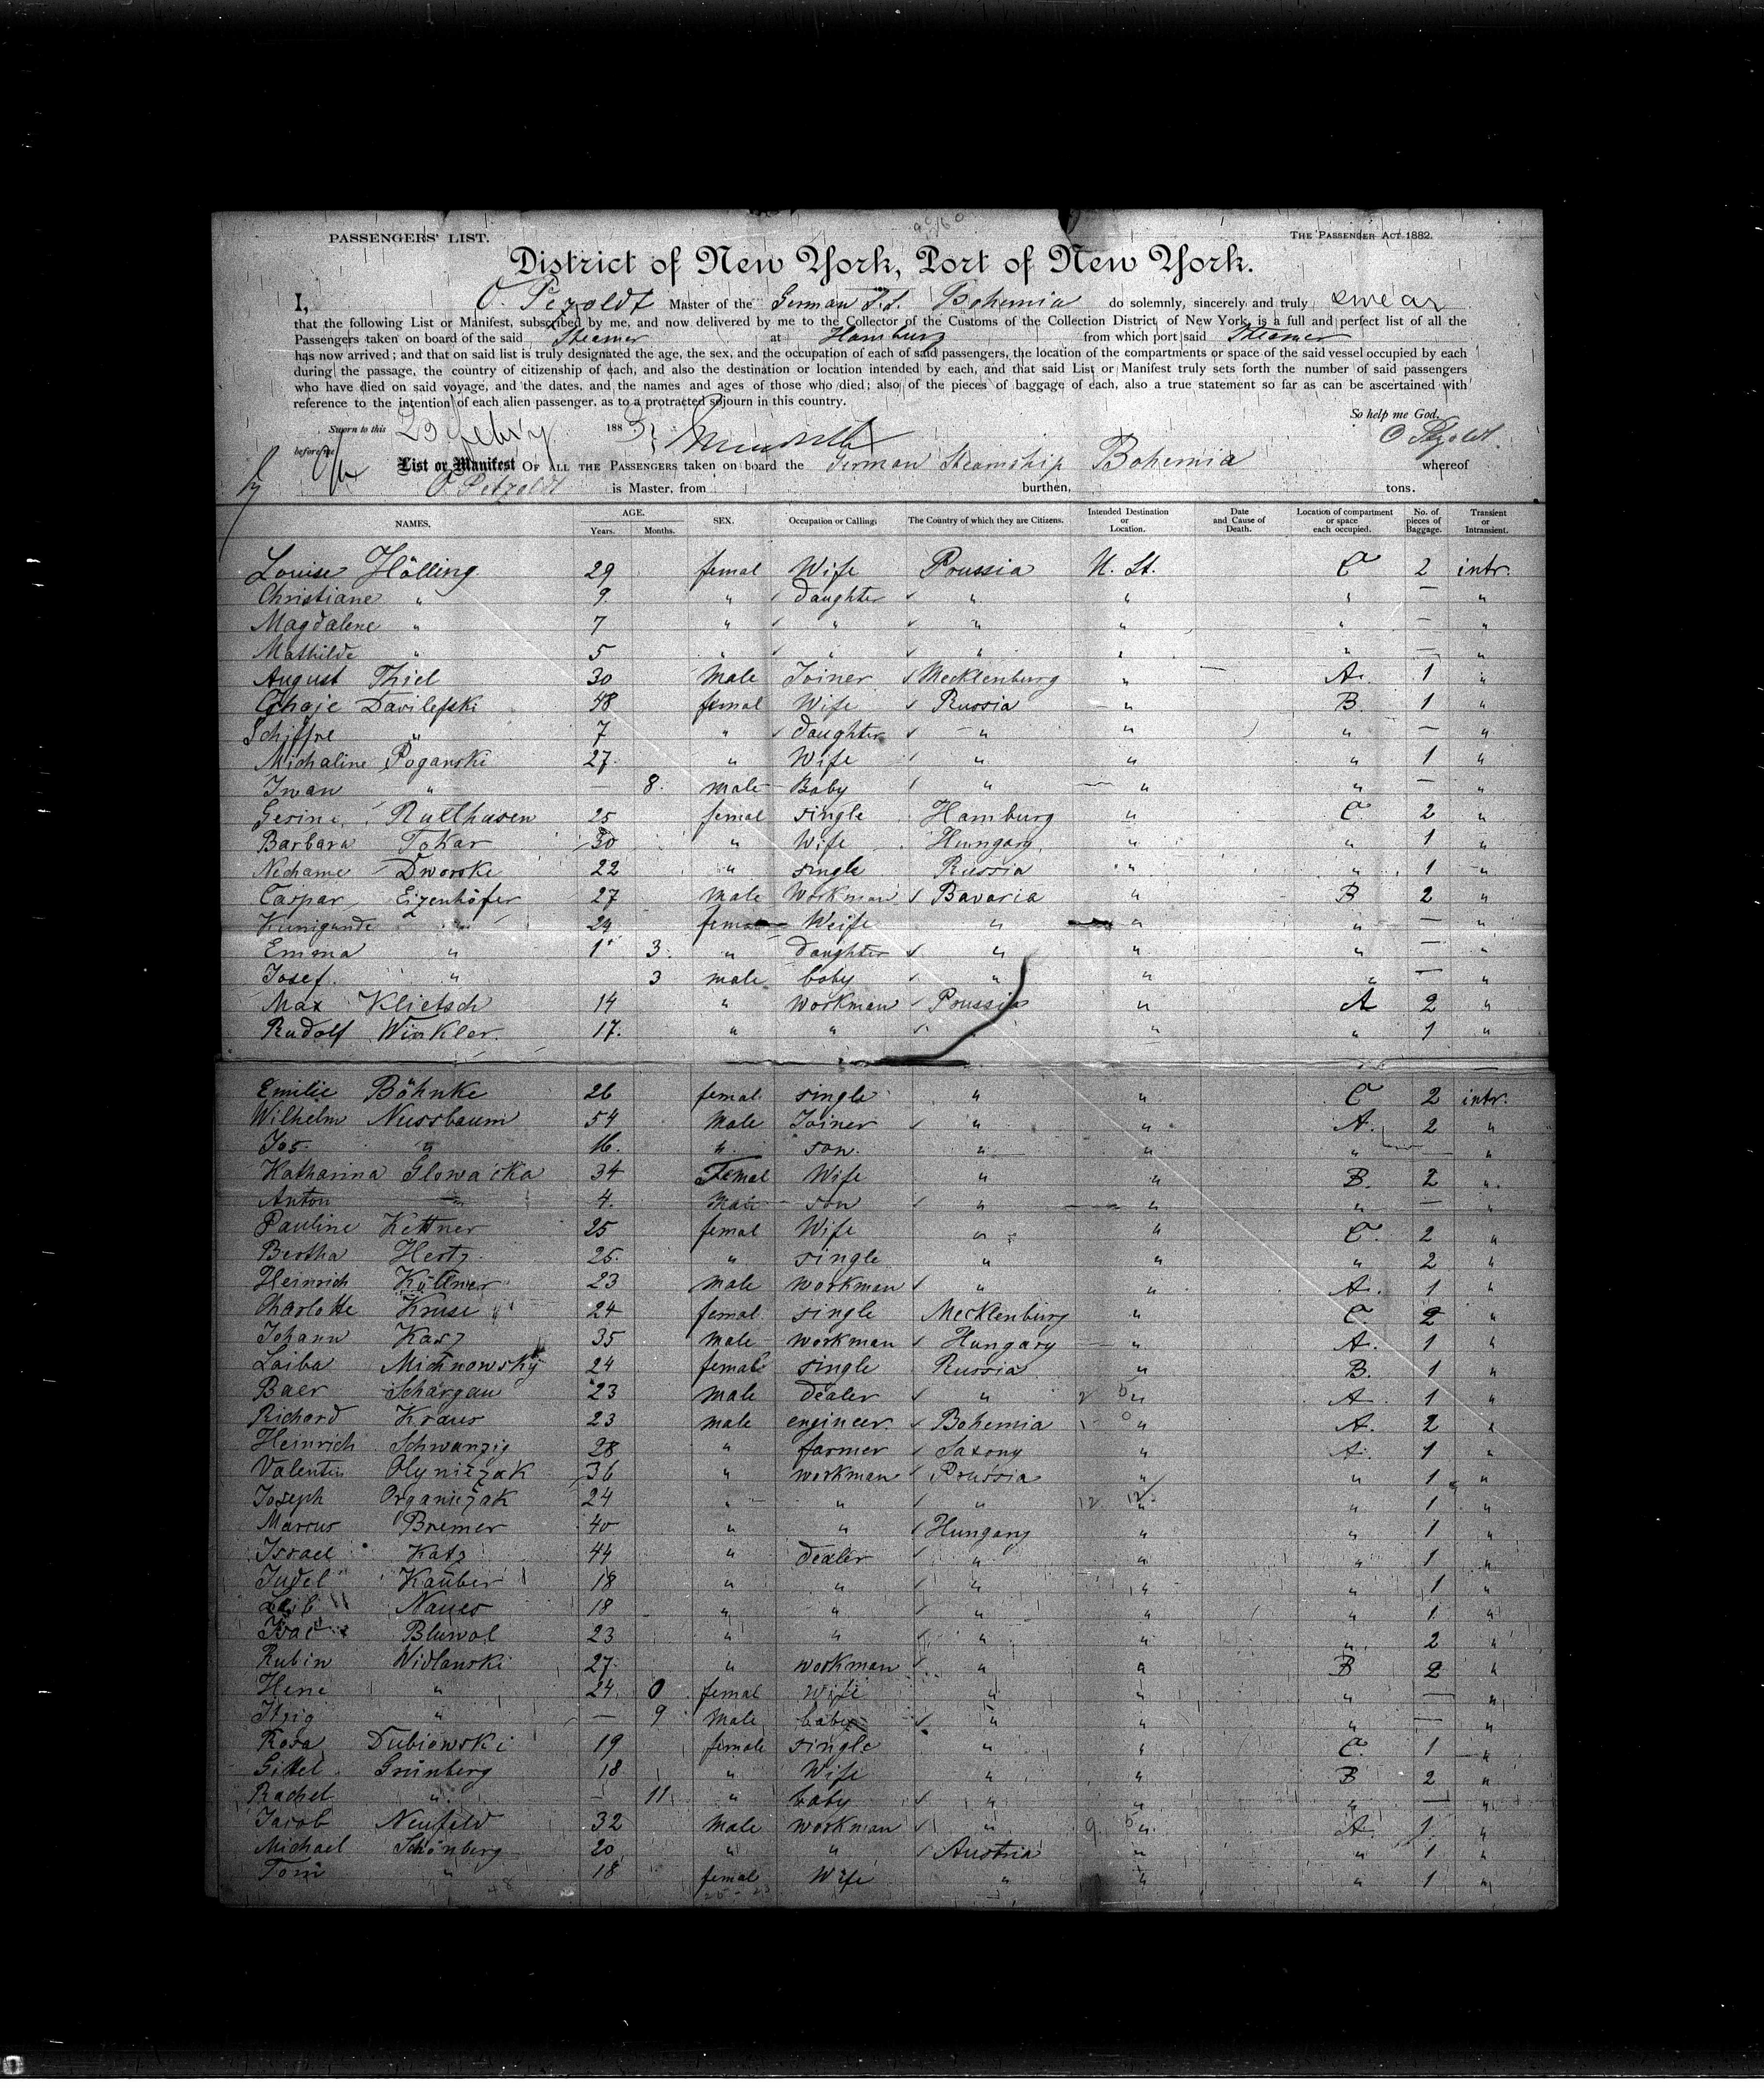 PASSENGERS' LIST.
THE PASSENGER ACT 1882.
District of New York, Port of New York.
I, O. Pezoldt Master of the German S.S. Bohemia do solemnly, sincerely and truly swear
that the following List or Manifest, subscribed by me, and now delivered by me to the Collector of the Customs of the Collection District of New York, is a full and perfect list of all the
Passengers taken on board of the said Steamer at Hamburg from which port said Steamer
has now arrived; and that on said list is truly designated the age, the sex, and the occupation of each of said passengers, the location of the compartments or space of the said vessel occupied by each
during the passage, the country of citizenship of each, and also the destination or location intended by each, and that said List or Manifest truly sets forth the number of said passengers
who have died on said voyage, and the dates, and the names and ages of those who died; also of the pieces of baggage of each, also a true statement so far as can be ascertained with
reference to the intention of each alien passenger, as to a protracted sojourn in this country.
So help me God,
Sworn to this 23 Febry 1883
O Pezoldt.
before me
List or Manifest OF ALL THE PASSENGERS taken on board the German Steamship Bohemia whereof
O Petzoldt is Master, from burthen, tons.
NAMES. AGE. Years. Months. SEX. Occupation or Calling. The Country of which they are Citizens. Intended Destination or Location. Date and Cause of Death. Location of compartment or space each occupied. No. of pieces of Baggage. Transient or Intransient.
Louise Hölling 29 femal Wife Prussia U. St. C 2 intr.
Christiane " 9 " daughter " " " — "
Magdalene " 7 " " " " " — "
Mathilde " 5 " " " " " — "
August Thiel 30 male Joiner Mecklenburg " A. 1 "
Chaje Davilefski 48 femal Wife Russia " B. 1 "
Schiffre " 7 " daughter " " " — "
Michaline Poganski 27 " Wife " " " 1 "
Iwan " — 8. male Baby " " " — "
Gesine Rulthusen 25 femal single Hamburg " C 2 "
Barbara Tokar 30 " Wife Hungary " " 1 "
Nechame Dworske 22 " single Russia " " 1 "
Caspar Eizenhöfer 27 male Workman Bavaria " B 2 "
Kunigunde " 24 femal Weife " " " — "
Emma " 1 3. " daughter " " " — "
Josef " 3 male baby " " " — "
Max Klietsch 14 " workman Prussia " A 2 "
Rudolf Winkler. 17. " " " " 1 "
Emilie Böhnke 26 femal single " " C 2 intr.
Wilhelm Nussbaum 54 male Joiner " " A. 2 "
Jos. " 16. " son. " " " — "
Katharina Glowacka 34 Femal Wife " " B. 2 "
Anton " 4. male son " " " — "
Pauline Kettner 25 femal Wife " " C. 2 "
Bertha Hertz 25. " single " " " 2 "
Heinrich Küttner 23 male workman " " A. 1 "
Charlotte Kruse 24 femal single Mecklenburg " C 2 "
Johann Kasz 35 male workman Hungary " A. 1 "
Laiba Michnowsky 24 female single Russia " B. 1 "
Baer Schargau 23 male dealer " " A. 1 "
Richard Kraus 23 male engineer. Bohemia " A. 2 "
Heinrich Schwanzig 28 " farmer Saxony " A. 1 "
Valentin Olyniezak 36 " workman Prussia " " 1 "
Joseph Organiezak 24 " " " " " 1 "
Marcus Bremer 40 " " Hungary " " 1 "
Israel Katz 44 " dealer " " " 1 "
Judel Kauber 18 " " " " " 1 "
Leib Naues 18 " " " " " 1 "
Isac Bluwol 23 " " " " " 2 "
Rubin Widlanski 27. " workman " " B 2 "
Hene " 24. 0 femal wife " " " — "
Itzig " — 9 male baby " " " — "
Rosa Dubiowski 19 female single " " C. 1 "
Gittel Grünberg 18 " Wife " " B 2 "
Rachel " — 11 " baby " " " — "
Jacob Neufeld 32 male workman " " A. 1 "
Michael Schönberg 20 " " Austria " " 1 "
Toni " 18 femal Wife " " " 1 "